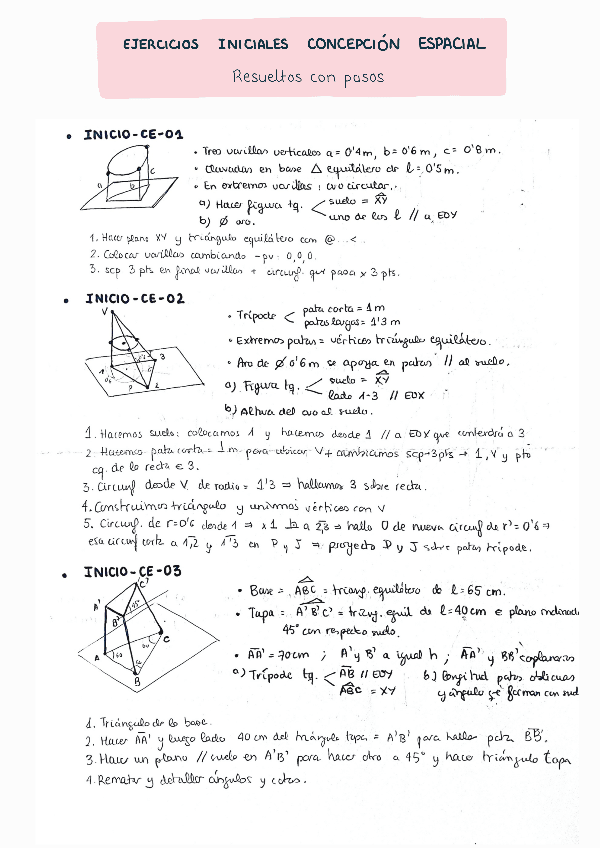 EJERCICIOS INICIALES CONCEPCIÓN ESPACIAL
Resueltos con pasos
• INICIO-CE-01
• Tres varillas verticales a = 0'4m, b = 0'6m, c = 0'8m.
• Clavadas en base △ equilátero de l = 0'5m.
• En extremos varillas: aro circular.
a) Hacer figura tq. < suelo = XY
uno de los l // a EOY
b) Ø aro.
a b c
1. Hacer plano XY y triángulo equilátero con @...<.
2. Colocar varillas cambiando -pv: 0,0,0.
3. scp 3 pts en final varillas + circunf. que pasa x 3 pts.
• INICIO-CE-02
V
• Trípode < pata corta = 1m
patas largas = 1'3m
• Extremos patas = vértices triángulo equilátero.
• Aro de Ø 0'6m se apoya en patas // al suelo.
a) Figura tq. < suelo = XY
lado 1-3 // EOX
b) Altura del aro al suelo.
1 2 3 P
1. Hacemos suelo: colocamos 1 y hacemos desde 1 // a EOX que contendrá a 3
2. Hacemos pata corta = 1m para ubicar V + cambiamos scp→3pts → 1, V y pto
cq. de la recta e 3.
3. Circunf desde V de radio = 1'3 ⇒ hallamos 3 sobre recta.
4. Construimos triángulo y unimos vértices con V
5. Circunf. de r=0'6 desde 1 ⇒ x 1 // a 23 ⇒ hallo O de nueva circunf de r' = 0'6 ⇒
esa circunf corta a 1,2 y 1'3 en P y J ⇒ proyecto P y J sobre patas trípode.
• INICIO-CE-03
C'
A'
B'
45°
A
B
C
• Base = ABC = triang. equilátero de l = 65 cm.
• Tapa = A'B'C' = triang. equil de l = 40cm e plano inclinado
45° con respecto suelo.
• AA' = 70cm ; A' y B' a igual h ; AA' y BB' coplanarios
a) Trípode tq. < AB // EOY
ABC = XY
b) Longitud patas oblicuas
y ángulo q' forman con suel
1. Triángulo de la base.
2. Hacer AA' y luego lado 40 cm del triángulo tapa = A'B' para hallar pata BB'.
3. Hacer un plano // suelo en A'B' para hacer otro a 45° y hacer triángulo tapa
4. Rematar y detallar ángulos y cotas.